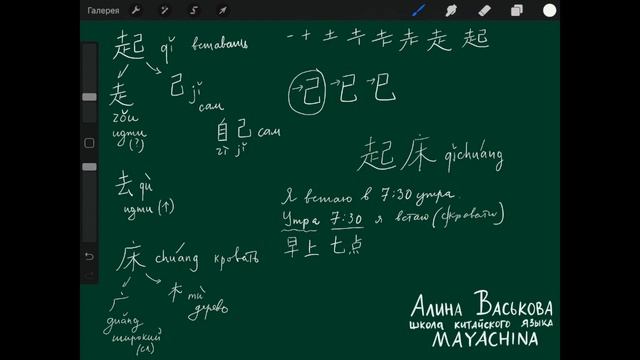 Галерея
起 qǐ вставать
走
zǒu
идти
(?)
己 jǐ
сам
自己 сам
zì jǐ
去 qù
идти (↑)
床 chuáng кровать
广
guǎng
широкий
(сл)
木 mù
дерево
一 十 土 走 起
己 已 巳
起床 qǐchuáng
Я встаю в 7:30 утра.
Утра 7:30 я встаю (с кровати)
早上 七点
Алина Васькова
школа китайского языка
MAYACHINA